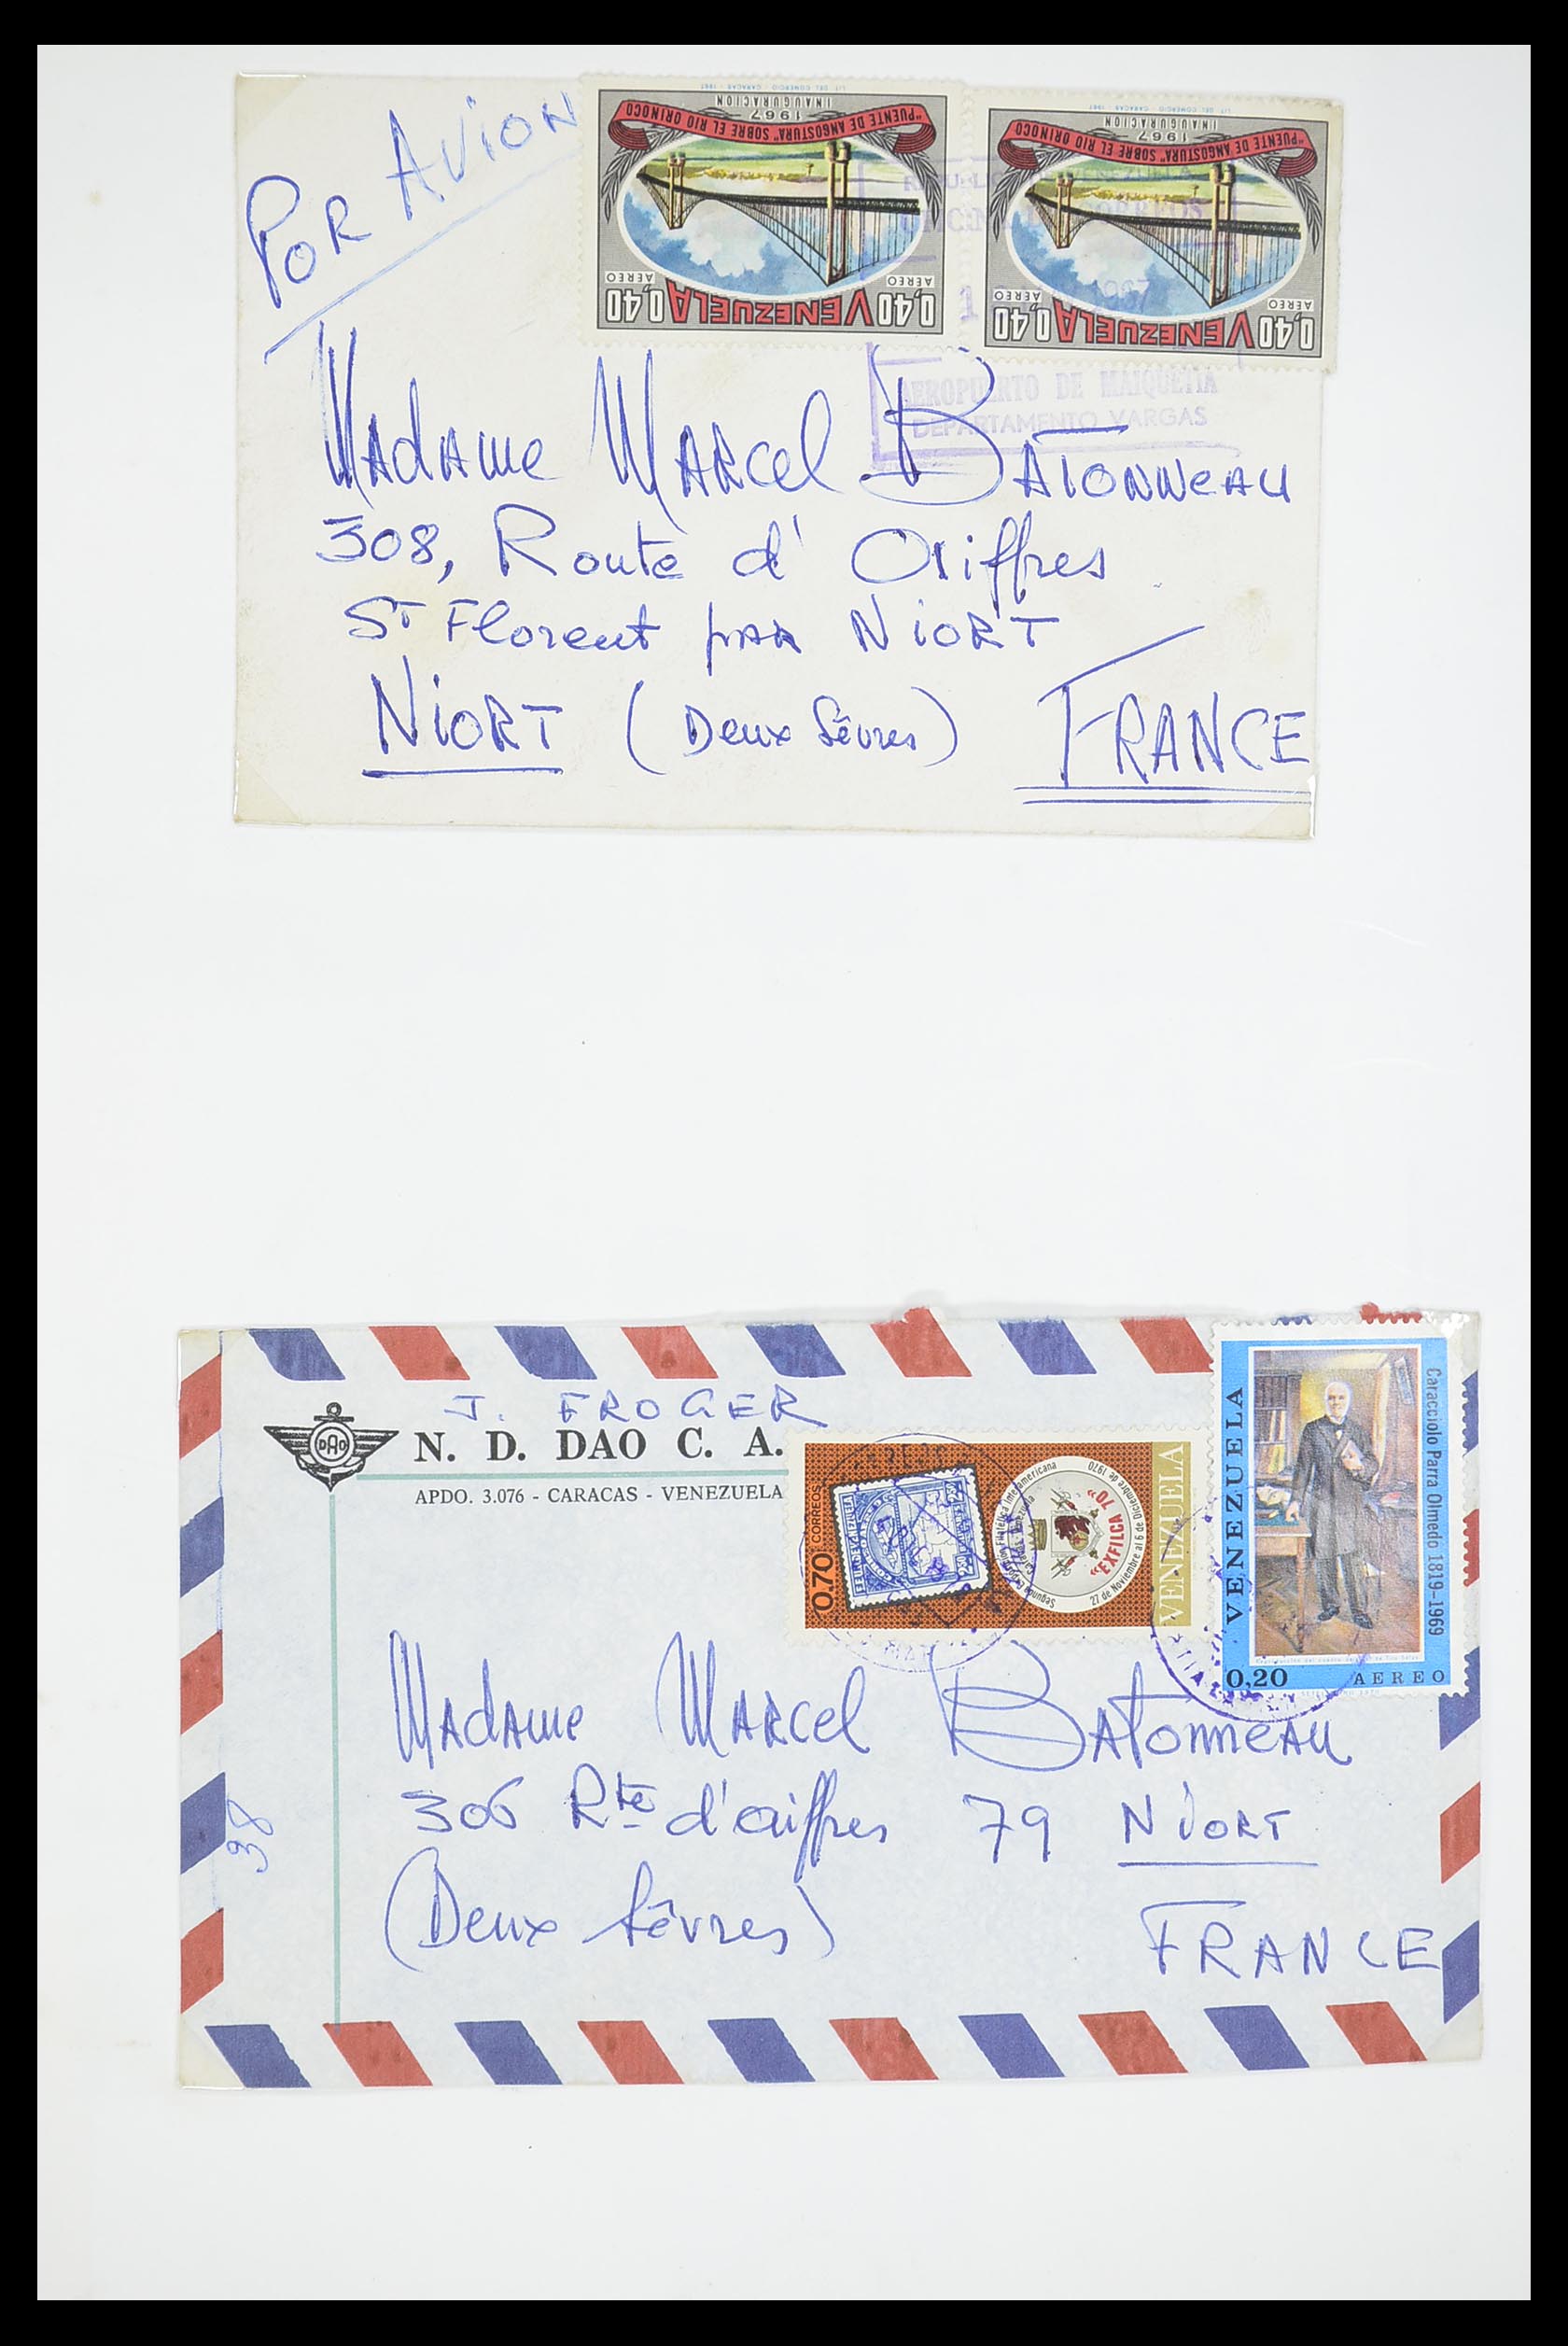 POR AVION
LIT. DEL COMERCIO - CARACAS - 1967
INAUGURACION
1967
"PUENTE DE ANGOSTURA" SOBRE EL RIO ORINOCO
AEREO AEREO
0,40 VENEZUELA 0,40
LIT. DEL COMERCIO - CARACAS - 1967
INAUGURACION
1967
"PUENTE DE ANGOSTURA" SOBRE EL RIO ORINOCO
AEREO AEREO
0,40 VENEZUELA 0,40
AEROPUERTO DE MAIQUETIA
DEPARTAMENTO VARGAS
Madame Marcel BATONNEAU
308, Route d'
St Florent par NIORT
NIORT (Deux Sèvres) FRANCE
J. FROGER
DAO
N. D. DAO C. A.
APDO. 3.076 - CARACAS - VENEZUELA
0,70 CORREOS
Segunda Exposición Filatélica Interamericana
"EXFILCA 70"
27 de Noviembre al 6 de Diciembre de 1970
VENEZUELA
VENEZUELA
Caracciolo Parra Olmedo 1819-1969
0,20 AEREO
Madame Marcel Batonneau
306 Rte d'aiffres 79 NIORT
(Deux Sèvres)
FRANCE
38